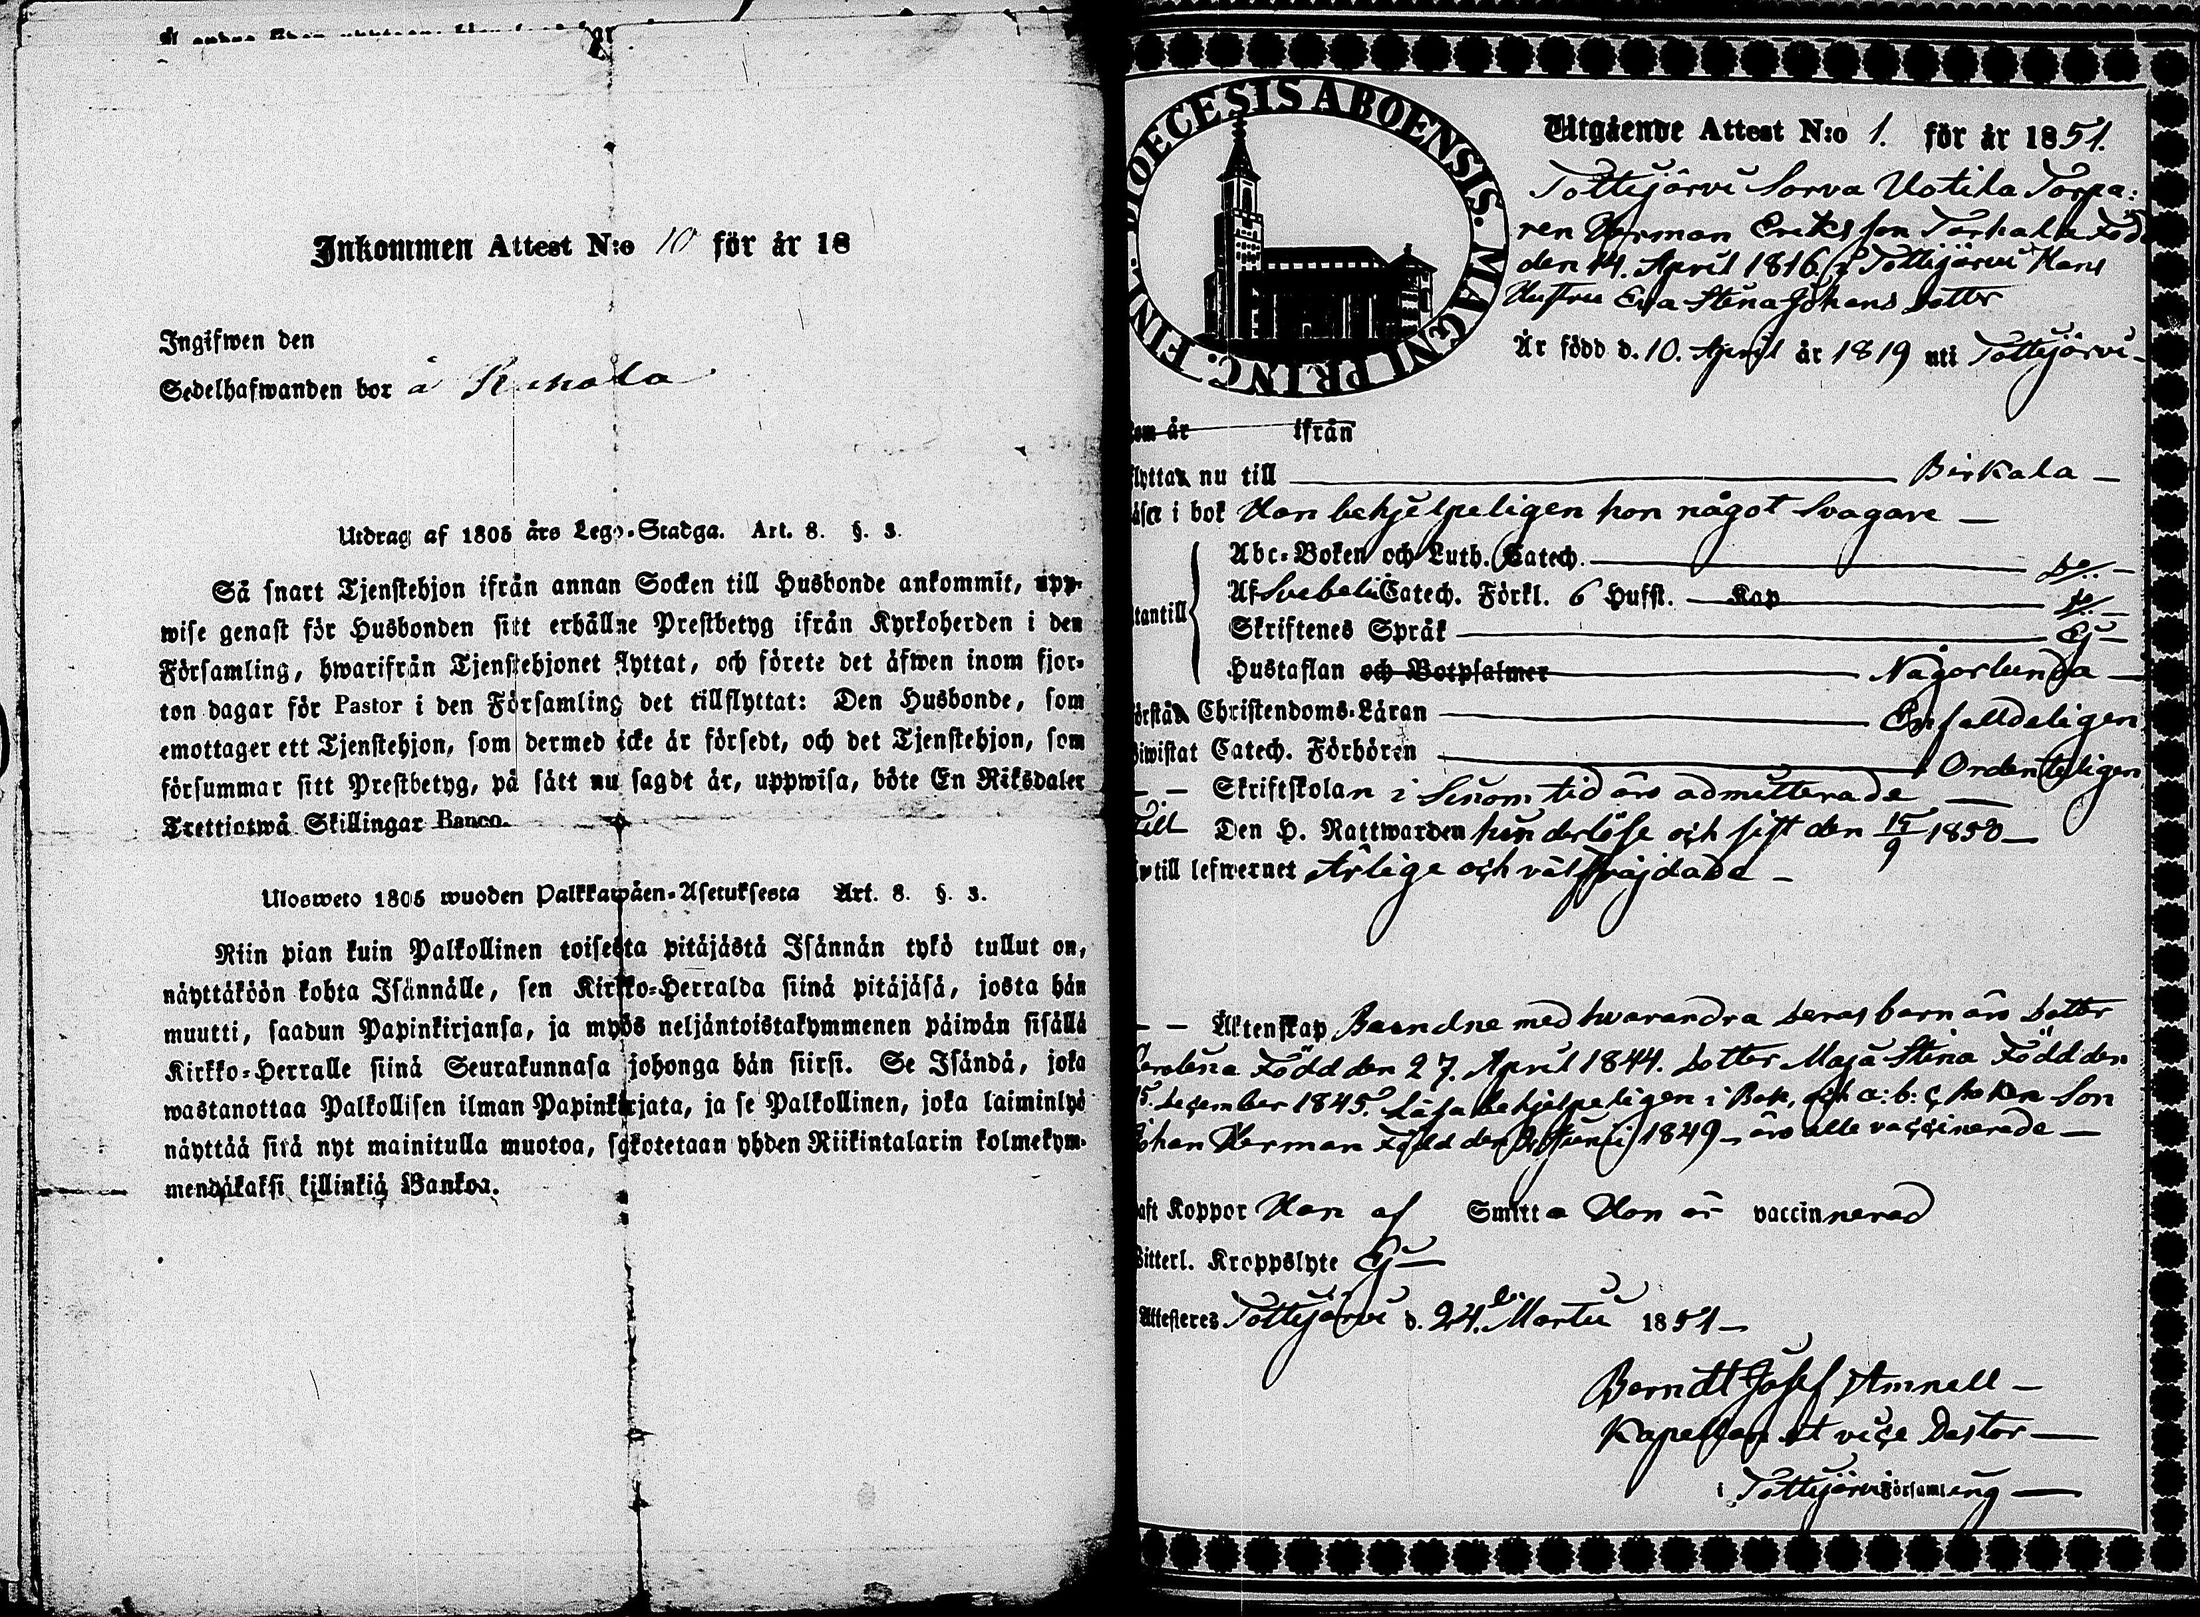 Inkommen Attest N:o 10 för år 18
Ingifwen den
Sedelhafwanden bor å
Utdrag af 1805 års Lego-Stadga. Art. 8. §. 3.
Så snart Tjenstehjon ifrån annan Socken till Husbonde ankommit, upp-
wise genast för Husbonden sitt erhållne Prestbetyg ifrån Kyrkoherden i den
Församling, hwarifrån Tjenstehjonet flyttat, och förete det äfwen inom fjor-
ton dagar för Pastor i den Församling det tillflyttat: Den Husbonde, som
emottager ett Tjenstehjon, som dermed icke är försedt, och det Tjenstehjon, som
försummar sitt Prestbetyg, på sätt nu sagdt är, uppwisa, böte En Riksdaler
Trettiotwå Skillingar Banco.
Ulosweto 1805 wuoden Palkkawäen-Asetuksesta Art. 8. §. 3.
Niin pian kuin Palkollinen toisesta pitäjästä Isännän tykö tullut on,
näyttäköön kohta Isännälle, sen Kirkko-Herralda siinä pitäjäsä, josta hän
muutti, saadun Papinkirjansa, ja myös neljäntoistakymmenen päiwän sisällä
Kirkko-Herralle siinä Seurakunnasa johonga hän siirsi. Se Isändä, joka
wastanottaa Palkollisen ilman Papinkirjata, ja se Palkollinen, joka laiminlyö
näyttää sitä nyt mainitulla muotoa, sakotetaan yhden Riikintalarin kolmekym-
mendäkaksi killinkiä Bankoa.
DIOECESIS ABOENSIS. MAGNI PRINC. FINL.
Utgående Attest N:o 1. för år 1851.
Tottijärvi Sorva Uotila Torpa:
ren Herman Eriksson Född
den 14. April 1816 i Tottijärvi Hans
Hustru Eva Stina Johans dotter
Är född d. 10. April år 1819 uti Tottijärvi
kom år ifrån
flyttar nu till Birkala
läser i bok Han behjelpeligen hon något Svagare
Abc-Boken och Luth. Catech. do.
Af Svebelii Catech. Förkl. 6 Hufst. Kap do.
Skriftenes Språk Ej
utantill Hustaflan och Botpsalmer Någorlunda
förstår Christendoms-Läran Enfaldeligen
biwistat Catech. Förhören Ordenteligen
Skriftskolan i Sinom tid äro admitterade
Till Den H. Nattwarden hinderlöse och sist den 15/9 1850
till lefwernet Ärlige och välfrejdade
Äktenskap Boendne med hvarandra deras barn äro Dotter
Carolina Född den 27. April 1844. Dotter Maja Stina Född den
15. December 1845. Läsa behjelpeligen i Bok, och a:b:c boken Son
Johan Herman Född den Junii 1849 äro alle vaccinerade
haft Koppor Han af Smitta Hon är vaccinnerad
Witterl. Kroppslyte Ej
Attesteres Tottijärvi d. 24. Martii 1851
Berndt Josef Amnell
Kapellan et vice Pastor
i Tottijärvi Församling